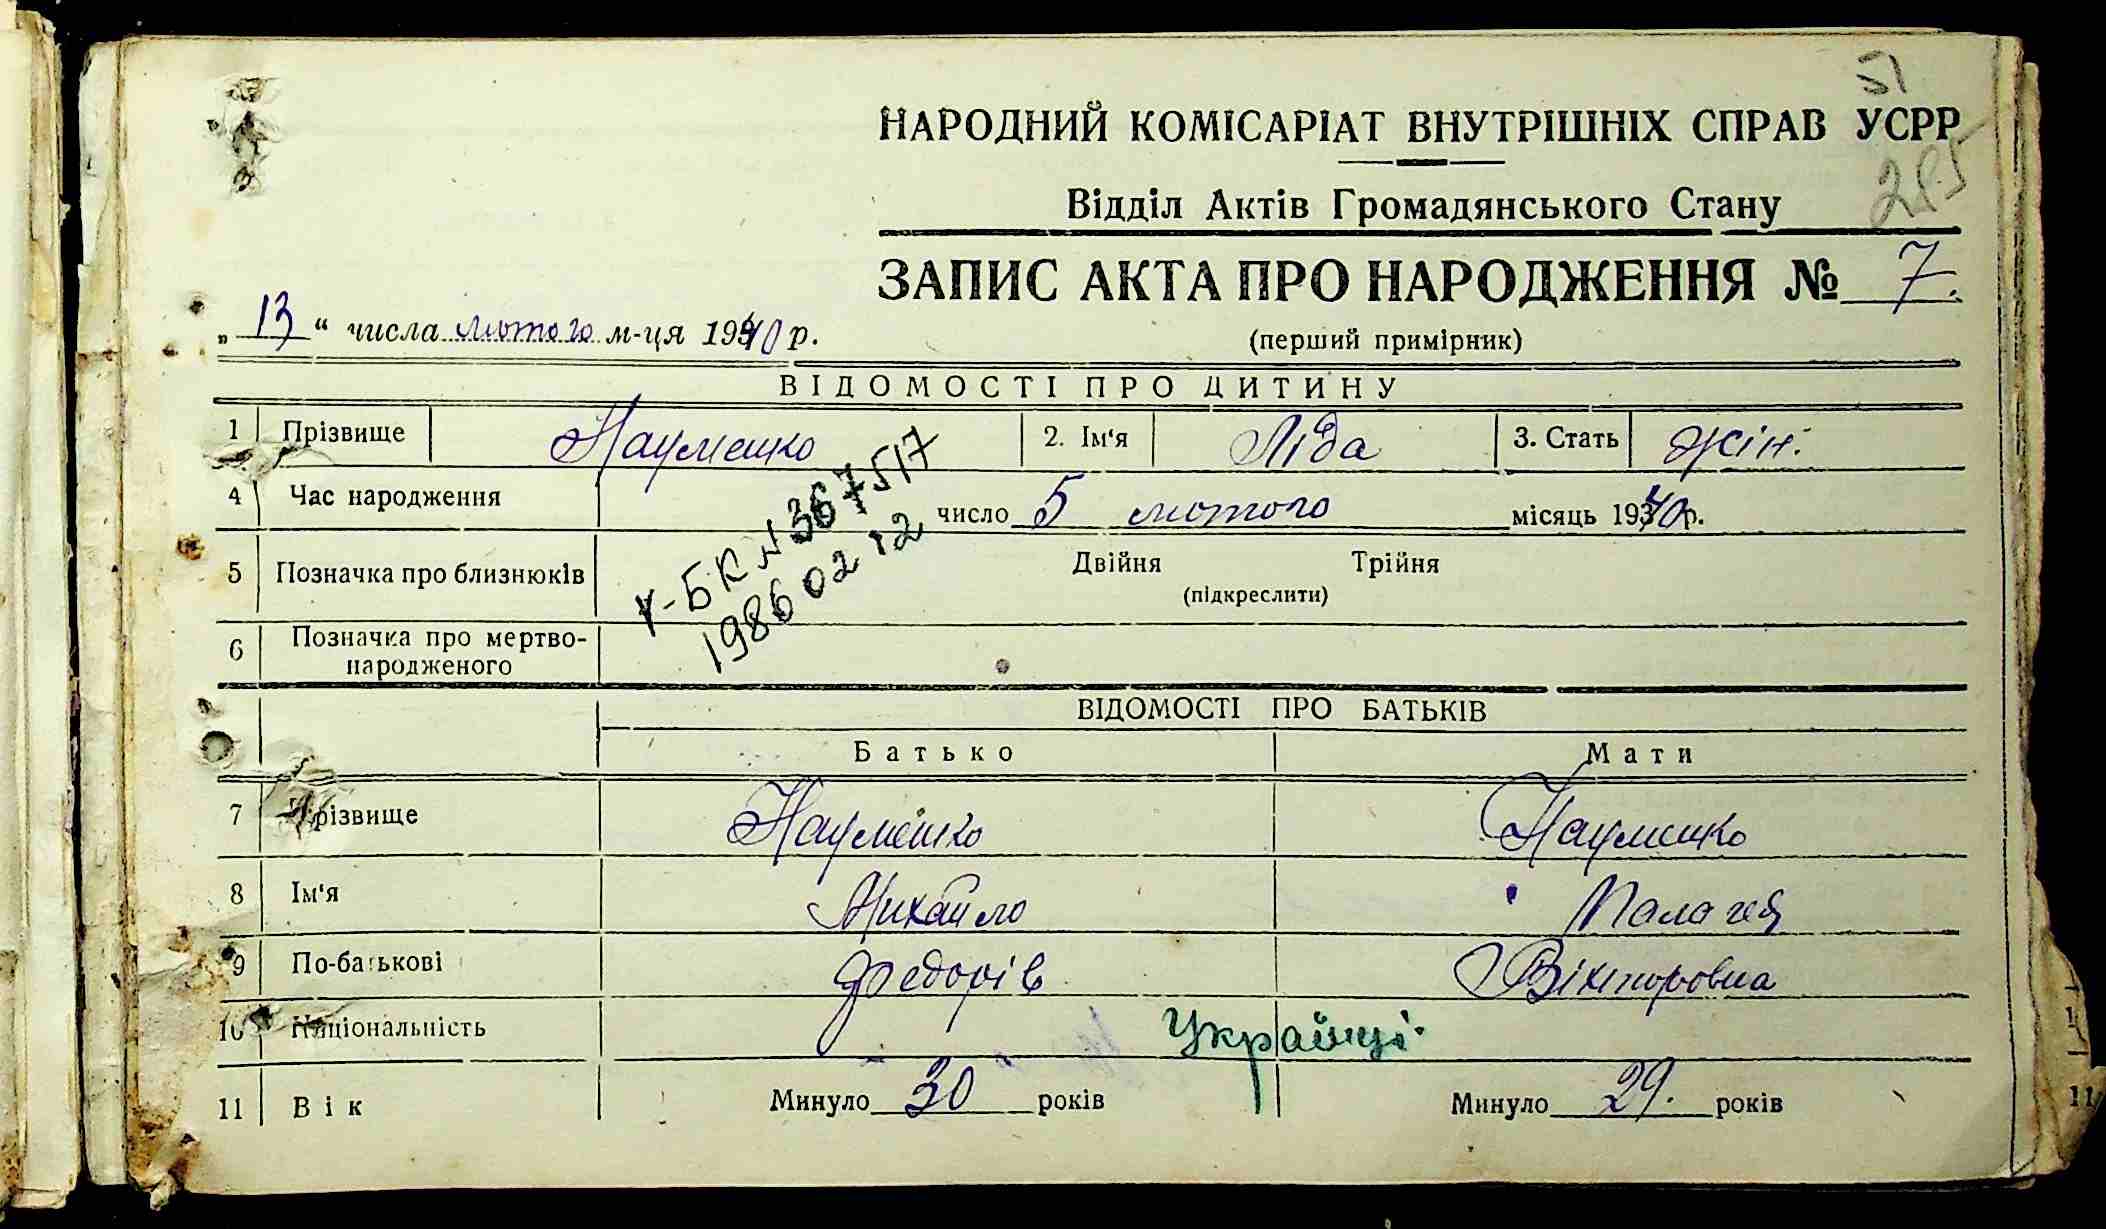 51
НАРОДНИЙ КОМІСАРІАТ ВНУТРІШНІХ СПРАВ УСРР
285
Відділ Актів Громадянського Стану
ЗАПИС АКТА ПРО НАРОДЖЕННЯ № 7.
„ 13 “ числа лютого м-ця 1940 р.
(перший примірник)
ВІДОМОСТІ ПРО ДИТИНУ
1 Прізвище Науменко 2. Ім'я Ліда 3. Стать жін.
4 Час народження число 5 лютого місяць 1940 р.
У-БК № 367517
1986 02 12
5 Позначка про близнюків Двійня Трійня
(підкреслити)
6 Позначка про мертво-
народженого
ВІДОМОСТІ ПРО БАТЬКІВ
Батько Мати
7 Прізвище Науменко Науменко
8 Ім'я Михайло Палагея
9 По-батькові Федорів Вікторовна
10 Національність Українці.
11 Вік Минуло 30 років Минуло 29. років
11